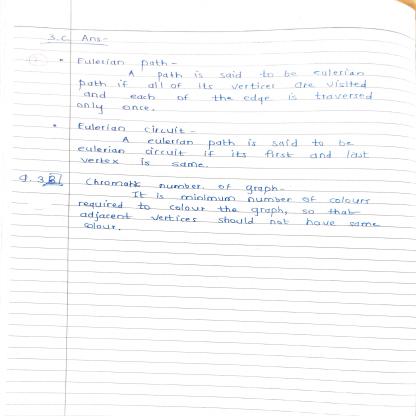 3.C. Ans-
• Eulerian path -
A path is said to be eulerian
path if all of its vertices are visited
and each of the edge is traversed
only once.
• Eulerian circuit -
A eulerian path is said to be
eulerian circuit if its first and last
vertex is same.
Q. 3.B] Chromatic number of graph-
It is minimum number of colours
required to colour the graph, so that
adjacent vertices should not have same
colour.